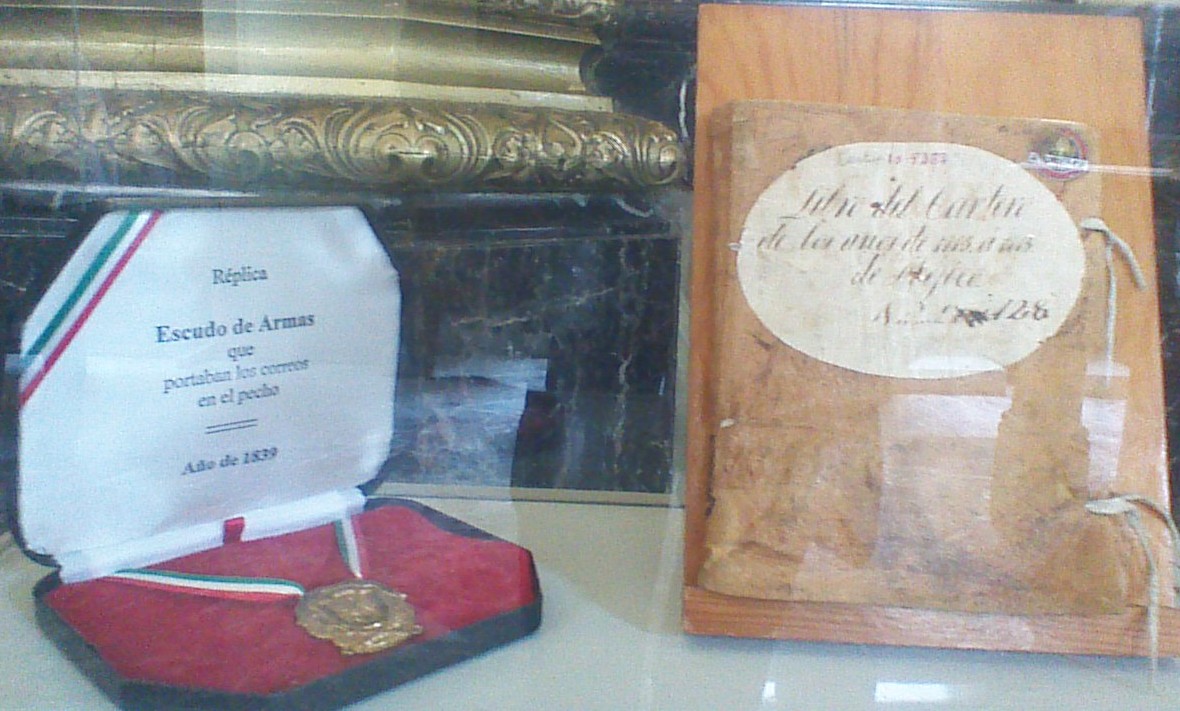 Réplica
Escudo de Armas
que
portaban los correos
en el pecho
Año de 1839
Libro del
de los años de
de
128